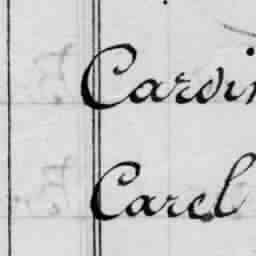 Cardin
Carel